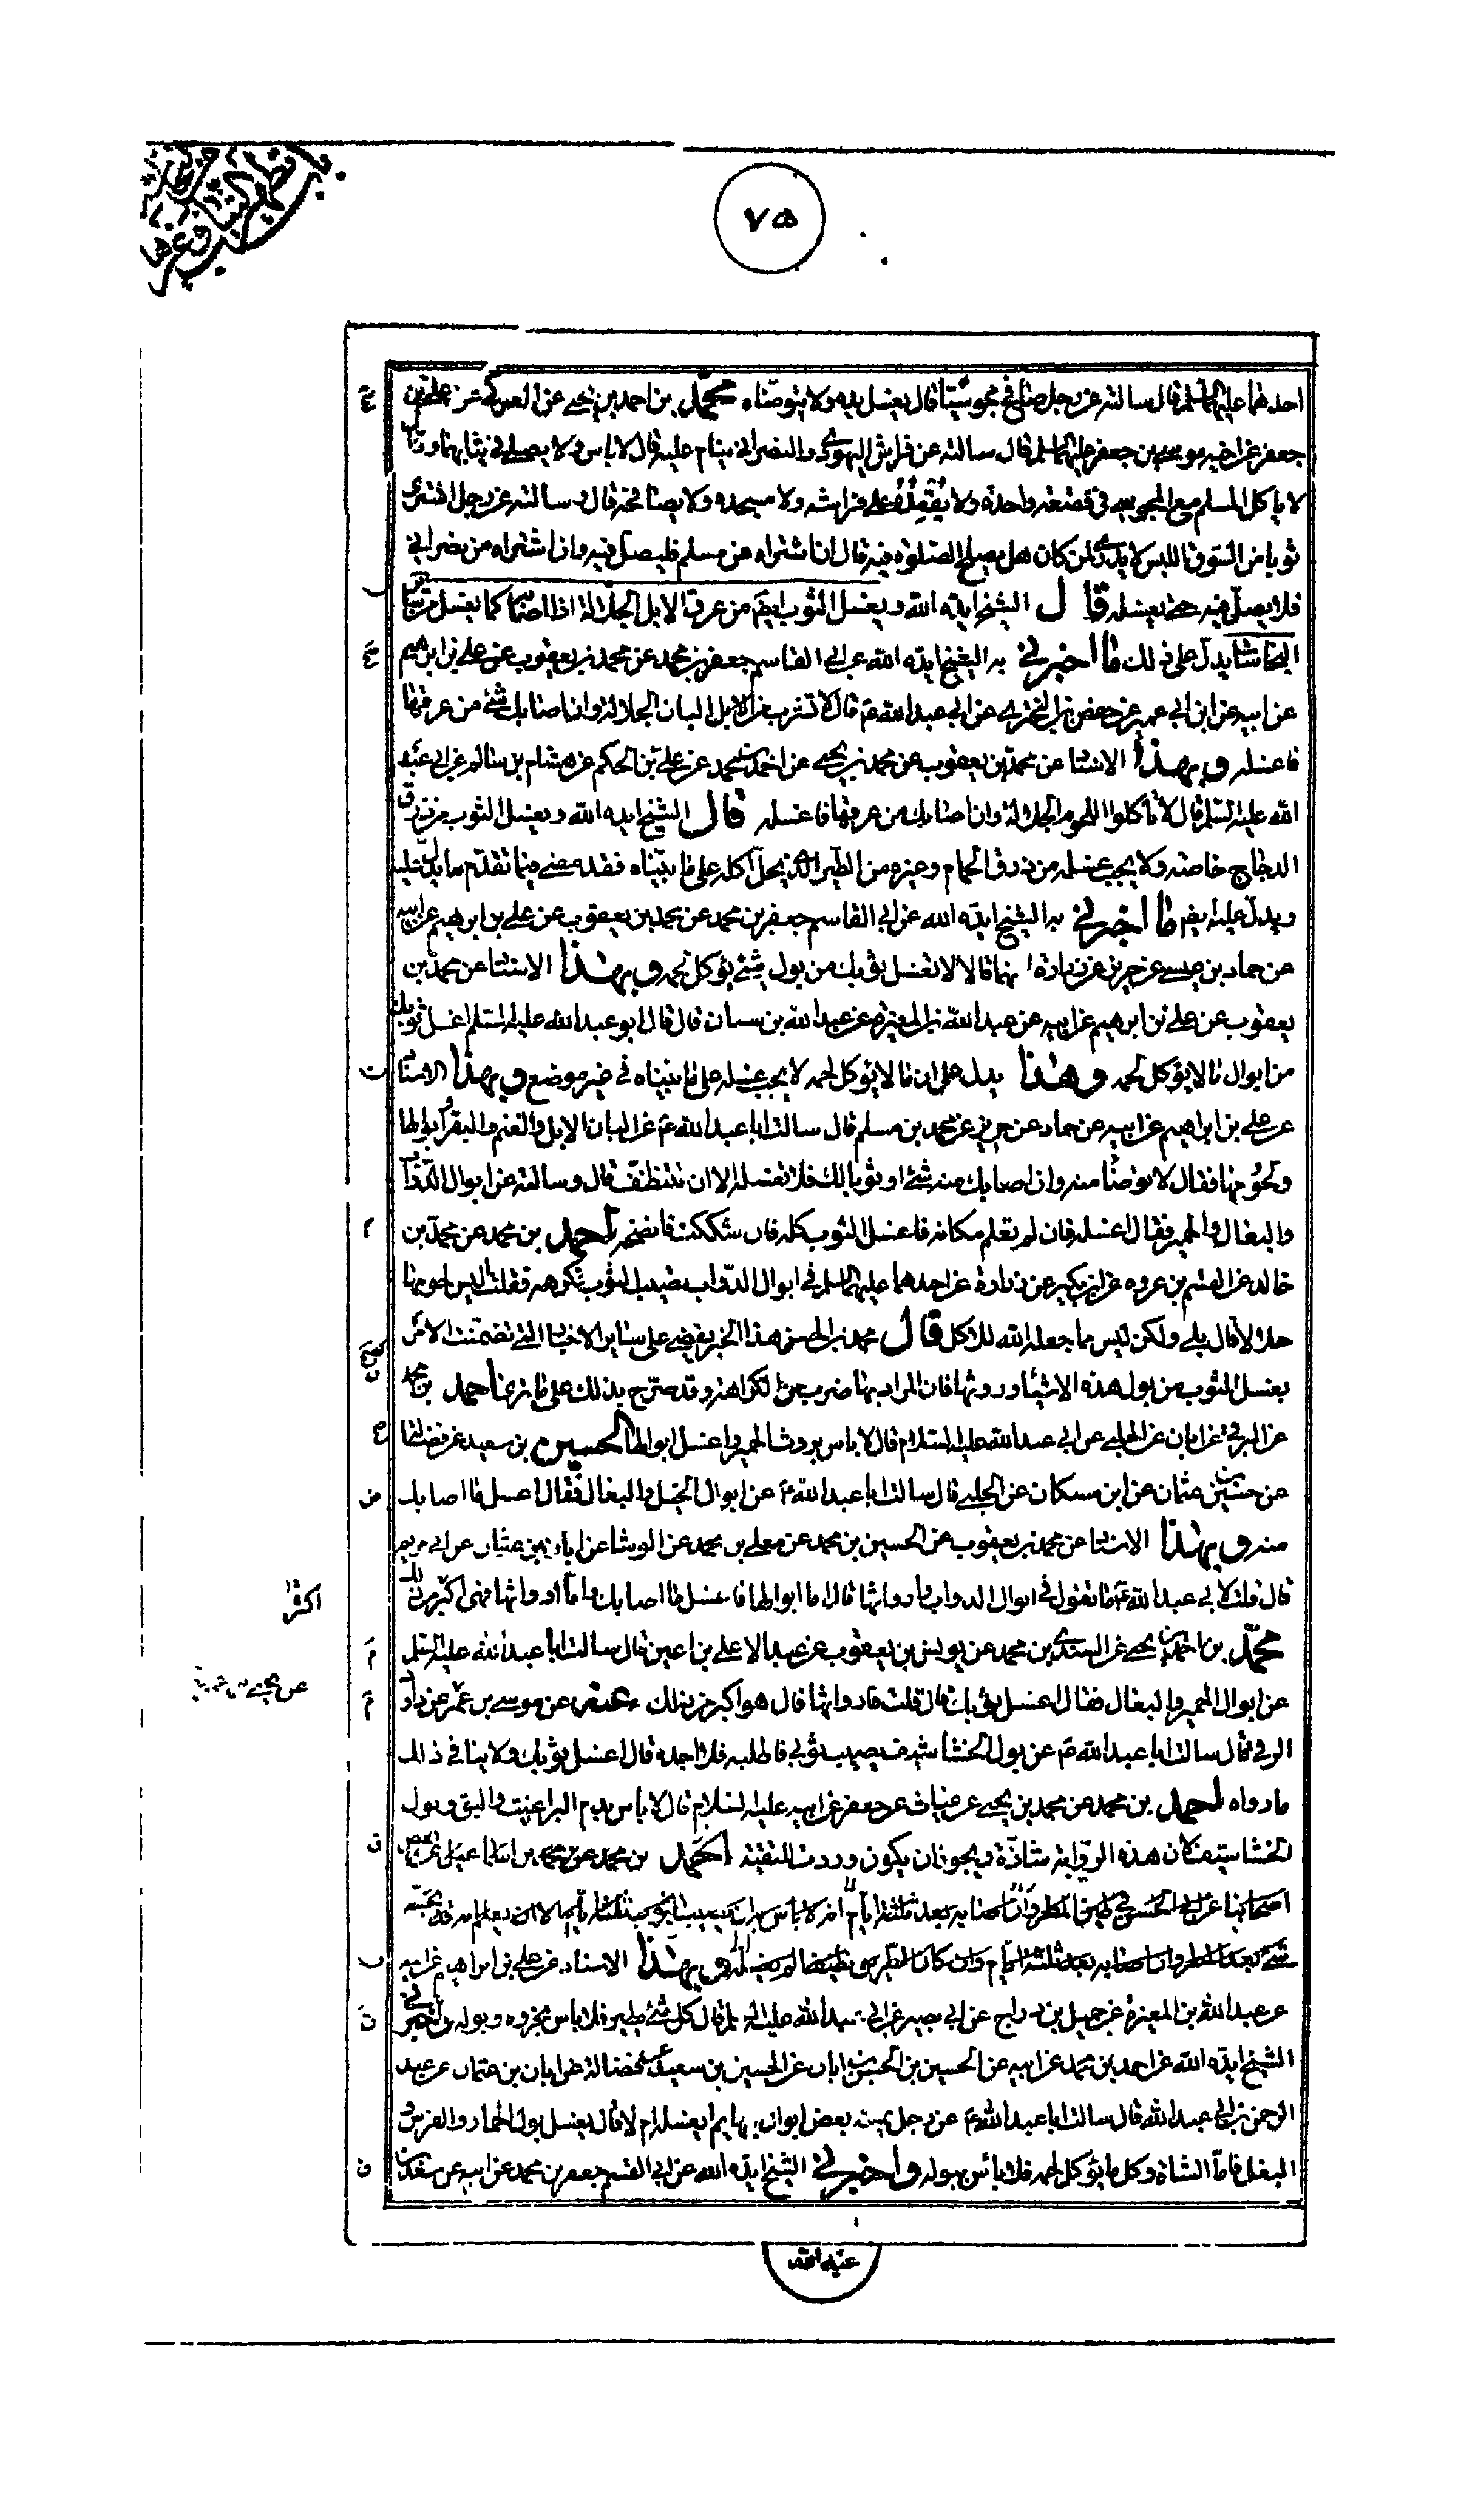 ٧٥
احدهما عليهما السلم قال سالته عن رجل صافح مجوسيا قال يغسل يده ولا يتوضاء محمد بن احمد بن يحيى عن العمركى عن على بن
جعفر عن اخيه موسى بن جعفر عليهما السلم قال سالته عن فراش اليهودى والنصرانى ينام عليه قال لا باس ولا يصلى فى ثيابهما وقال
لا ياكل المسلم مع المجوسى فى قصعة واحدة ولا يُقْعِدُهُ على فراشه ولا مسجده ولا يصافحه قال وسالته عن رجل اشترى
ثوبا من السوق للبس لا يدرى لمن كان هل يصلح الصلوة فيه قال ان اشتراه من مسلم فليصل فيه وان اشتراه من نصرانى
فلا يصلى فيه حتى يغسله قال الشيخ ايده الله ويغسل الثوب ايضم من عرق الابل الجلالة اذا اصابها كما يغسل من سائر
النجاسات يدل على ذلك ما اخبرنى به الشيخ ايده الله عن ابى القاسم جعفر بن محمد عن محمد بن يعقوب عن على بن ابرهيم
عن ابيه عن ابن ابى عمير عن حفص بن البخترى عن ابى عبد الله ع قال لا تشرب من الابل البان الجلالة وان اصابك شئ من عرقها
فاغسله وبهذا الاسناد عن محمد بن يعقوب عن محمد بن يحيى عن احمد بن محمد عن على بن الحكم عن هشام بن سالم عن ابى عبد
الله عليه السلم قال لا تاكلوا اللحوم الجلالة وان اصابك من عرقها فاغسله قال الشيخ ايده الله ويغسل الثوب من ذرق
الدجاج خاصة ولا يجب غسله من ذرق الحمام وغيره من الطير الذى يحل اكله على ما بيناه فقد مضى فيما تقدم ما يدل عليه
ويدل عليه ايضم ما اخبرنى به الشيخ ايده الله عن ابى القاسم جعفر بن محمد عن محمد بن يعقوب عن على بن ابرهيم عن ابيه
عن حماد بن عيسى عن حريز عن زرارة انهما قالا لا تغسل ثوبك من بول شئ يؤكل لحمه وبهذا الاسناد عن محمد بن
يعقوب عن على بن ابرهيم عن ابيه عن عبد الله بن المغيرة عن عبد الله بن سنان قال قال ابو عبد الله عليه السلم اغسل ثوبك
من ابوال ما لا يؤكل لحمه وهذا يدل على ان ما لا يؤكل لحمه لا يجب غسله على ما بيناه فى غير موضع وبهذا الاسناد
عن على بن ابراهيم عن ابيه عن حماد عن حريز عن محمد بن مسلم قال سالت ابا عبد الله ع عن البان الابل والغنم والبقر وابوالها
ولحومها فقال لا توضأ منه وان اصابك منه شئ او ثوبا لك فلا تغسله الا ان تتنظف قال وسالته عن ابوال الدواب
والبغال والحمير فقال اغسله فان لم تعلم مكانه فاغسل الثوب كله فان شككت فانضحه احمد بن محمد عن محمد بن
خالد عن القسم بن عروه عن ابن بكير عن زرارة عن احدهما عليهما السلم فى ابوال الدواب تصيب الثوب فكرهه فقلت اليس لحومها
حلالا قال بلى ولكن ليس مما جعله الله للاكل قال محمد بن الحسن هذا الخبر يقضى على سائر الاخبار التى تضمنت الامر
بغسل الثوب من بول هذه الاشياء وروثها فان المراد بها ضرب من الكراهة وقد صرح بذلك على ما ترى احمد بن محمد
عن البرقى عن ابان عن الحلبى عن ابى عبد الله عليه السلام قال لا باس بروث الحمير واغسل ابوالها الحسين بن سعيد عن فضالة
عن حسين بن عثمان عن ابن مسكان عن الحلبى قال سالت ابا عبد الله ع عن ابوال الخيل والبغال فقال اغسل ما اصابك
منه وبهذا الاسناد عن محمد بن يعقوب عن الحسين بن محمد عن معلى بن محمد عن الوشا عن ابان بن عثمان عن ابى مريم
قال قلت لابى عبد الله ع ما تقول فى ابوال الدواب واروائها قال اما ابوالها فاغسل ما اصابك واما ارواثها فهى اكثر من ذلك
اكثر
محمد بن احمد بن يحيى عن السندى بن محمد عن يونس بن يعقوب عن عبد الاعلى بن اعين قال سالت ابا عبد الله عليه السلم
عن ابوال الحمير والبغال فقال اغسل ثوبك قال قلت فارواثها قال هو اكبر من ذلك عنه عن موسى بن عمر عن داود
الرقى قال سالت ابا عبد الله ع عن بول الخشاشيف يصيب ثوبى فاطلبه فلا اجده قال اغسل ثوبك ولا ينافى ذلك
ما رواه احمد بن محمد عن محمد بن يحيى عن غياث عن جعفر عن ابيه عليه السلام قال لا باس بدم البراغيث والبق وبول
الخشاشيف لان هذه الرواية شاذة ويجوز ان يكون وردت للتقية احمد بن محمد عن محمد بن اسمعيل عن بعض
اصحابنا عن ابى الحسن فى طين المطر
شئ بعد المطر وان اصابه بعد ثلثة ايام وان كان الطريق نظيفا لم يغسله وبهذا الاسناد عن على بن ابراهيم عن ابيه
عن عبد الله بن المغيرة عن جميل بن دراج عن ابى بصير عن ابى عبد الله عليه السلم قال كل شئ يطير فلا باس بخروه وبوله واخبرنى
الشيخ ايده الله عن احمد بن محمد عن ابيه عن الحسين بن الحسن بن ابان عن الحسين بن سعيد عن فضالة عن ابان بن عثمان عن عبد
الرحمن بن ابى عبد الله قال سالت ابا عبد الله ع عن رجل يمسه بعض ابوال البهايم ايغسله ام لا قال يغسل بول الحمار والفرس و
البغل فاما الشاة وكل ما يؤكل لحمه فلا باس ببوله واخبرنى الشيخ ايده الله عن ابى القسم جعفر بن محمد عن ابيه عن سعد بن
عبد الله